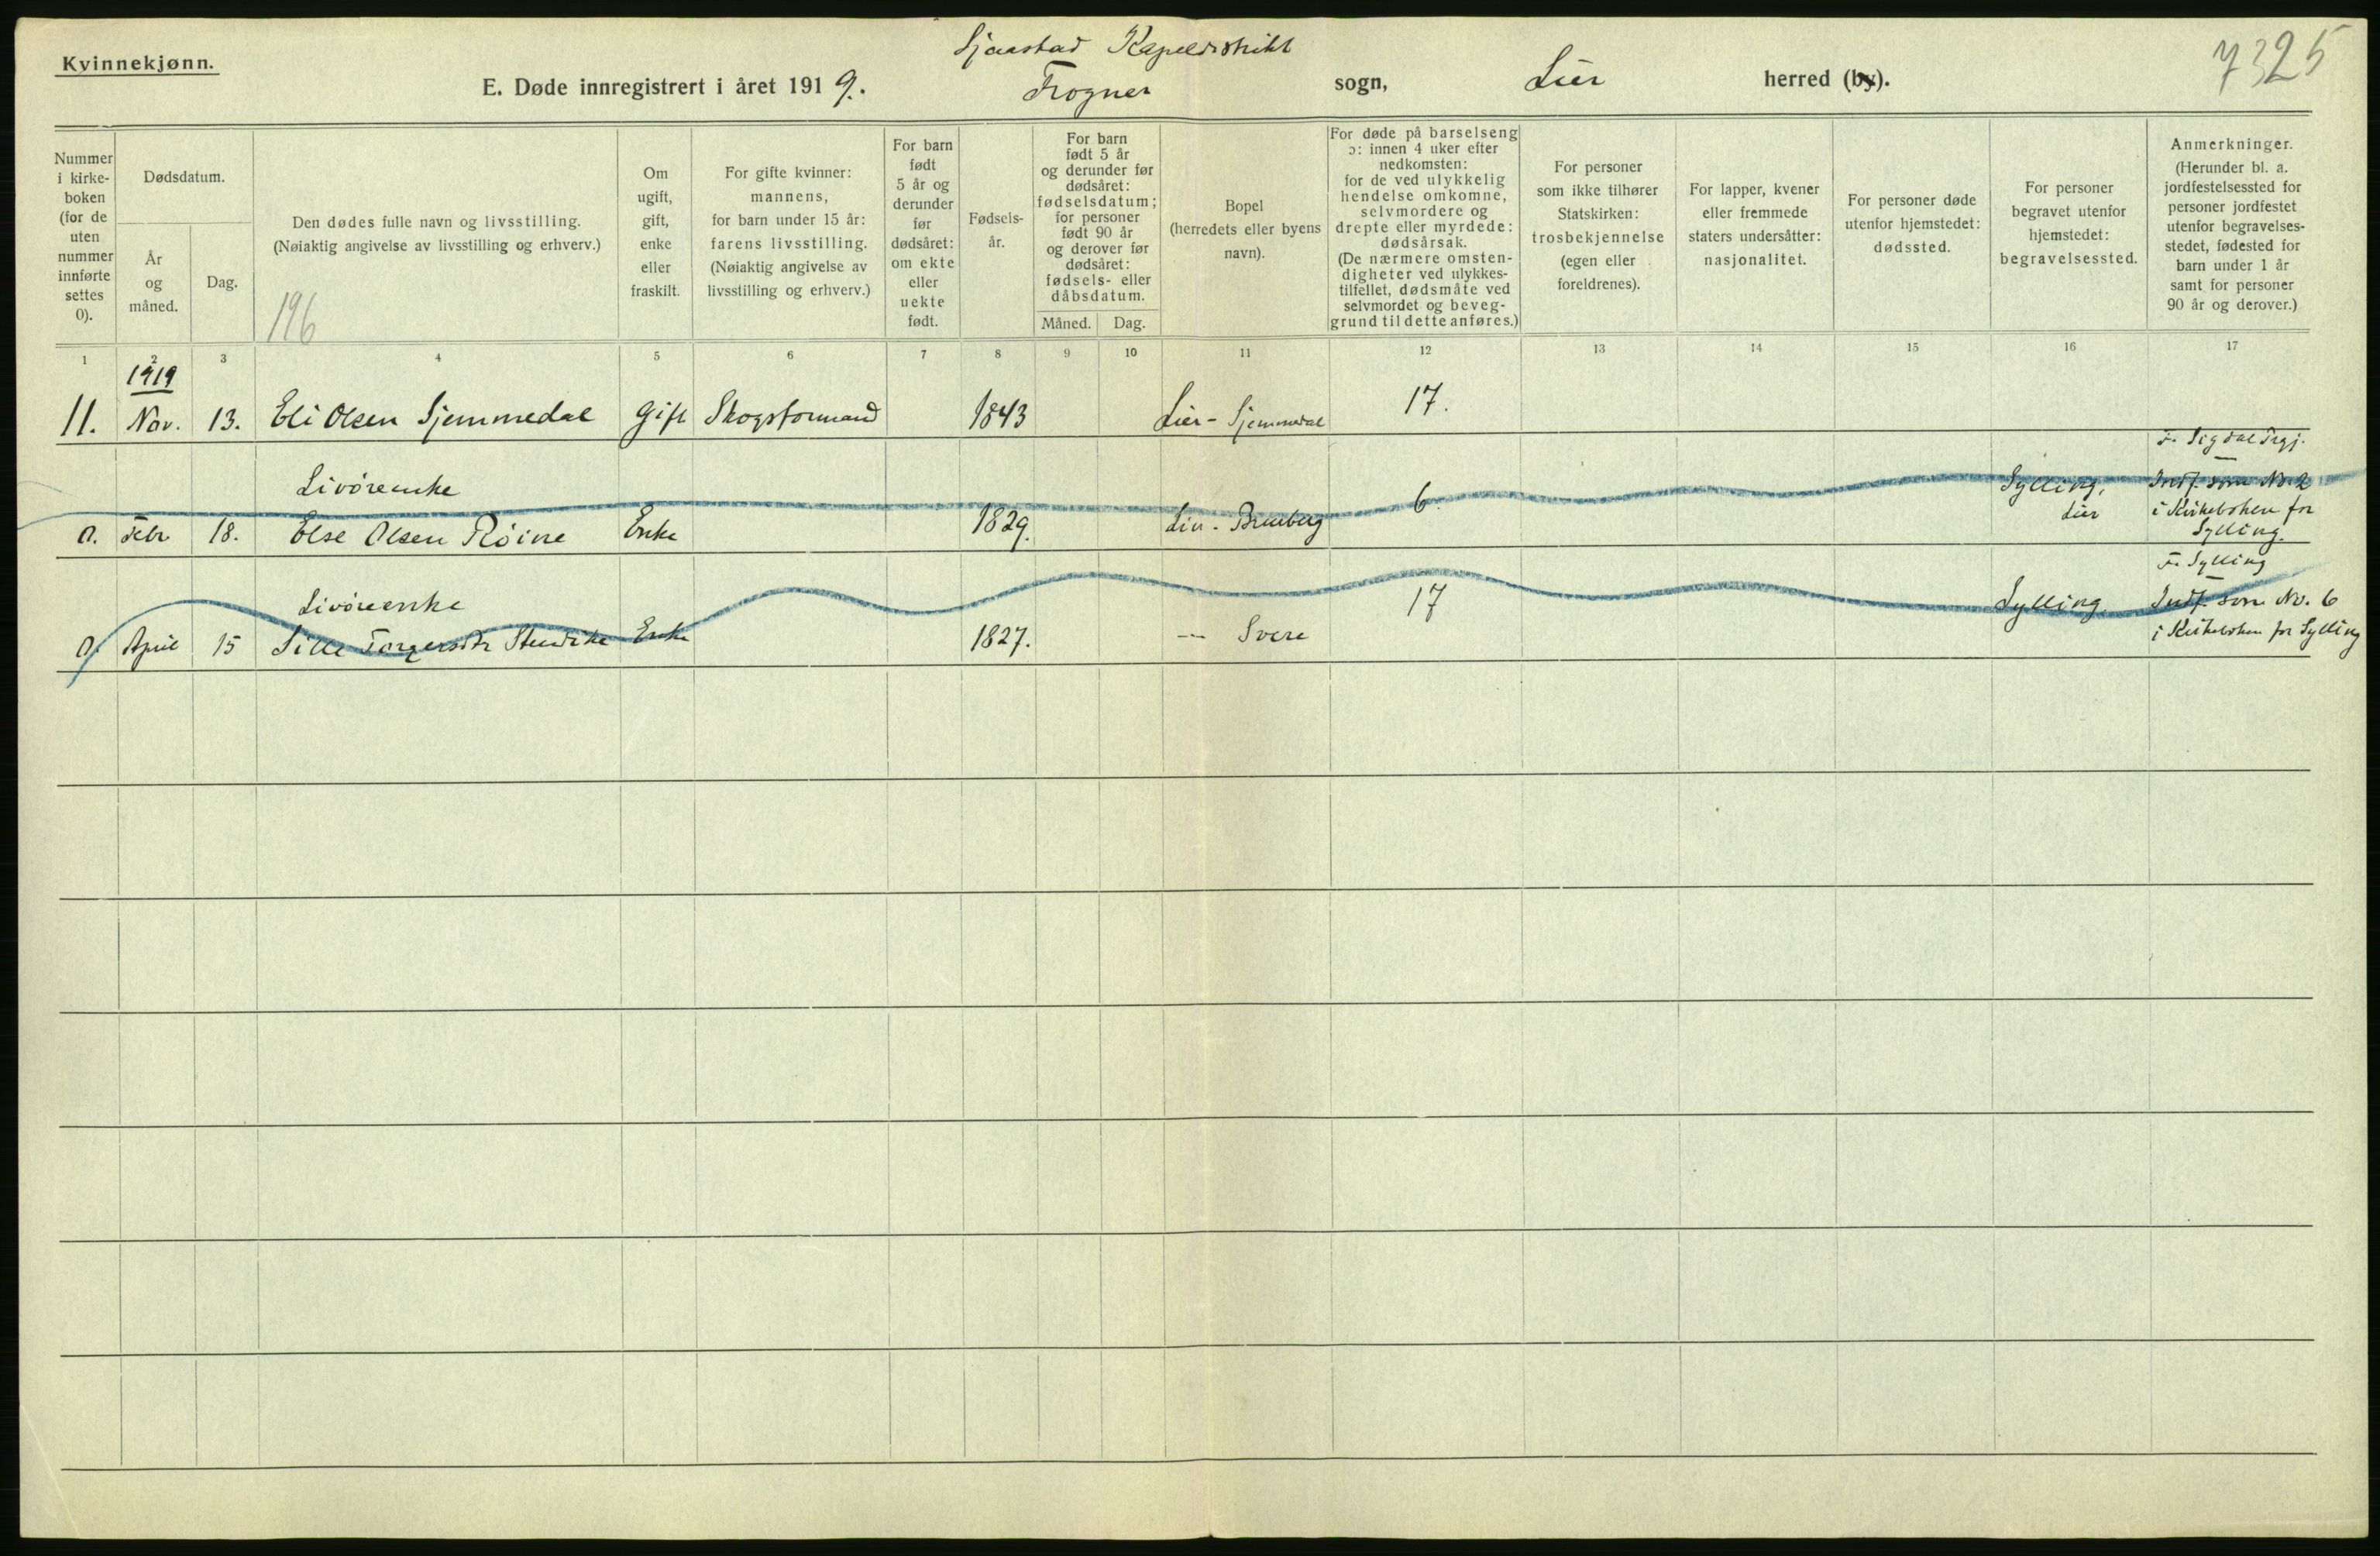 Kvinnekjønn.
Sjaastad Kapeldistrikt
7325
E. Døde innregistrert i året 1919. Frogner sogn, Lier herred (by).
Nummer i kirkeboken (for de uten nummer innførte settes 0).
Dødsdatum.
År og måned.
Dag.
Den dødes fulle navn og livsstilling.
(Nøiaktig angivelse av livsstilling og erhverv.)
196
Om ugift, gift, enke eller fraskilt.
For gifte kvinner: mannens, for barn under 15 år: farens livsstilling. (Nøiaktig angivelse av livsstilling og erhverv.)
For barn født 5 år og derunder før dødsåret: om ekte eller uekte født.
Fødselsår.
For barn født 5 år og derunder før dødsåret: fødselsdatum; for personer født 90 år og derover før dødsåret: fødsels- eller dåbsdatum.
Måned. Dag.
Bopel (herredets eller byens navn).
For døde på barselseng ɔ: innen 4 uker efter nedkomsten: for de ved ulykkelig hendelse omkomne, selvmordere og drepte eller myrdede: dødsårsak. (De nærmere omstendigheter ved ulykkestilfellet, dødsmåte ved selvmordet og beveggrund til dette anføres.)
For personer som ikke tilhører Statskirken: trosbekjennelse (egen eller foreldrenes).
For lapper, kvener eller fremmede staters undersåtter: nasjonalitet.
For personer døde utenfor hjemstedet: dødssted.
For personer begravet utenfor hjemstedet: begravelsessted.
Anmerkninger. (Herunder bl. a. jordfestelsessted for personer jordfestet utenfor begravelsesstedet, fødested for barn under 1 år samt for personer 90 år og derover.)
1 2 3 4 5 6 7 8 9 10 11 12 13 14 15 16 17
1919
11. Nov. 13. Eli Olsen Sjemmedal Gift Skogsformand 1843 Lier - Sjemmedal 17.
F. Sigdal Prgj.
Livøreenke Sylling, Indf. som No. 2
0. Febr 18. Else Olsen Röine Enke 1829. Lier - 6. Lier i Kirkeboken for
Sylling.
F. Sylling
Livøreenke 17 Sylling Indf. som No. 6
0. April 15 Sille Torgersdtr Enke 1827. — Svere i Kirkeboken for Sylling